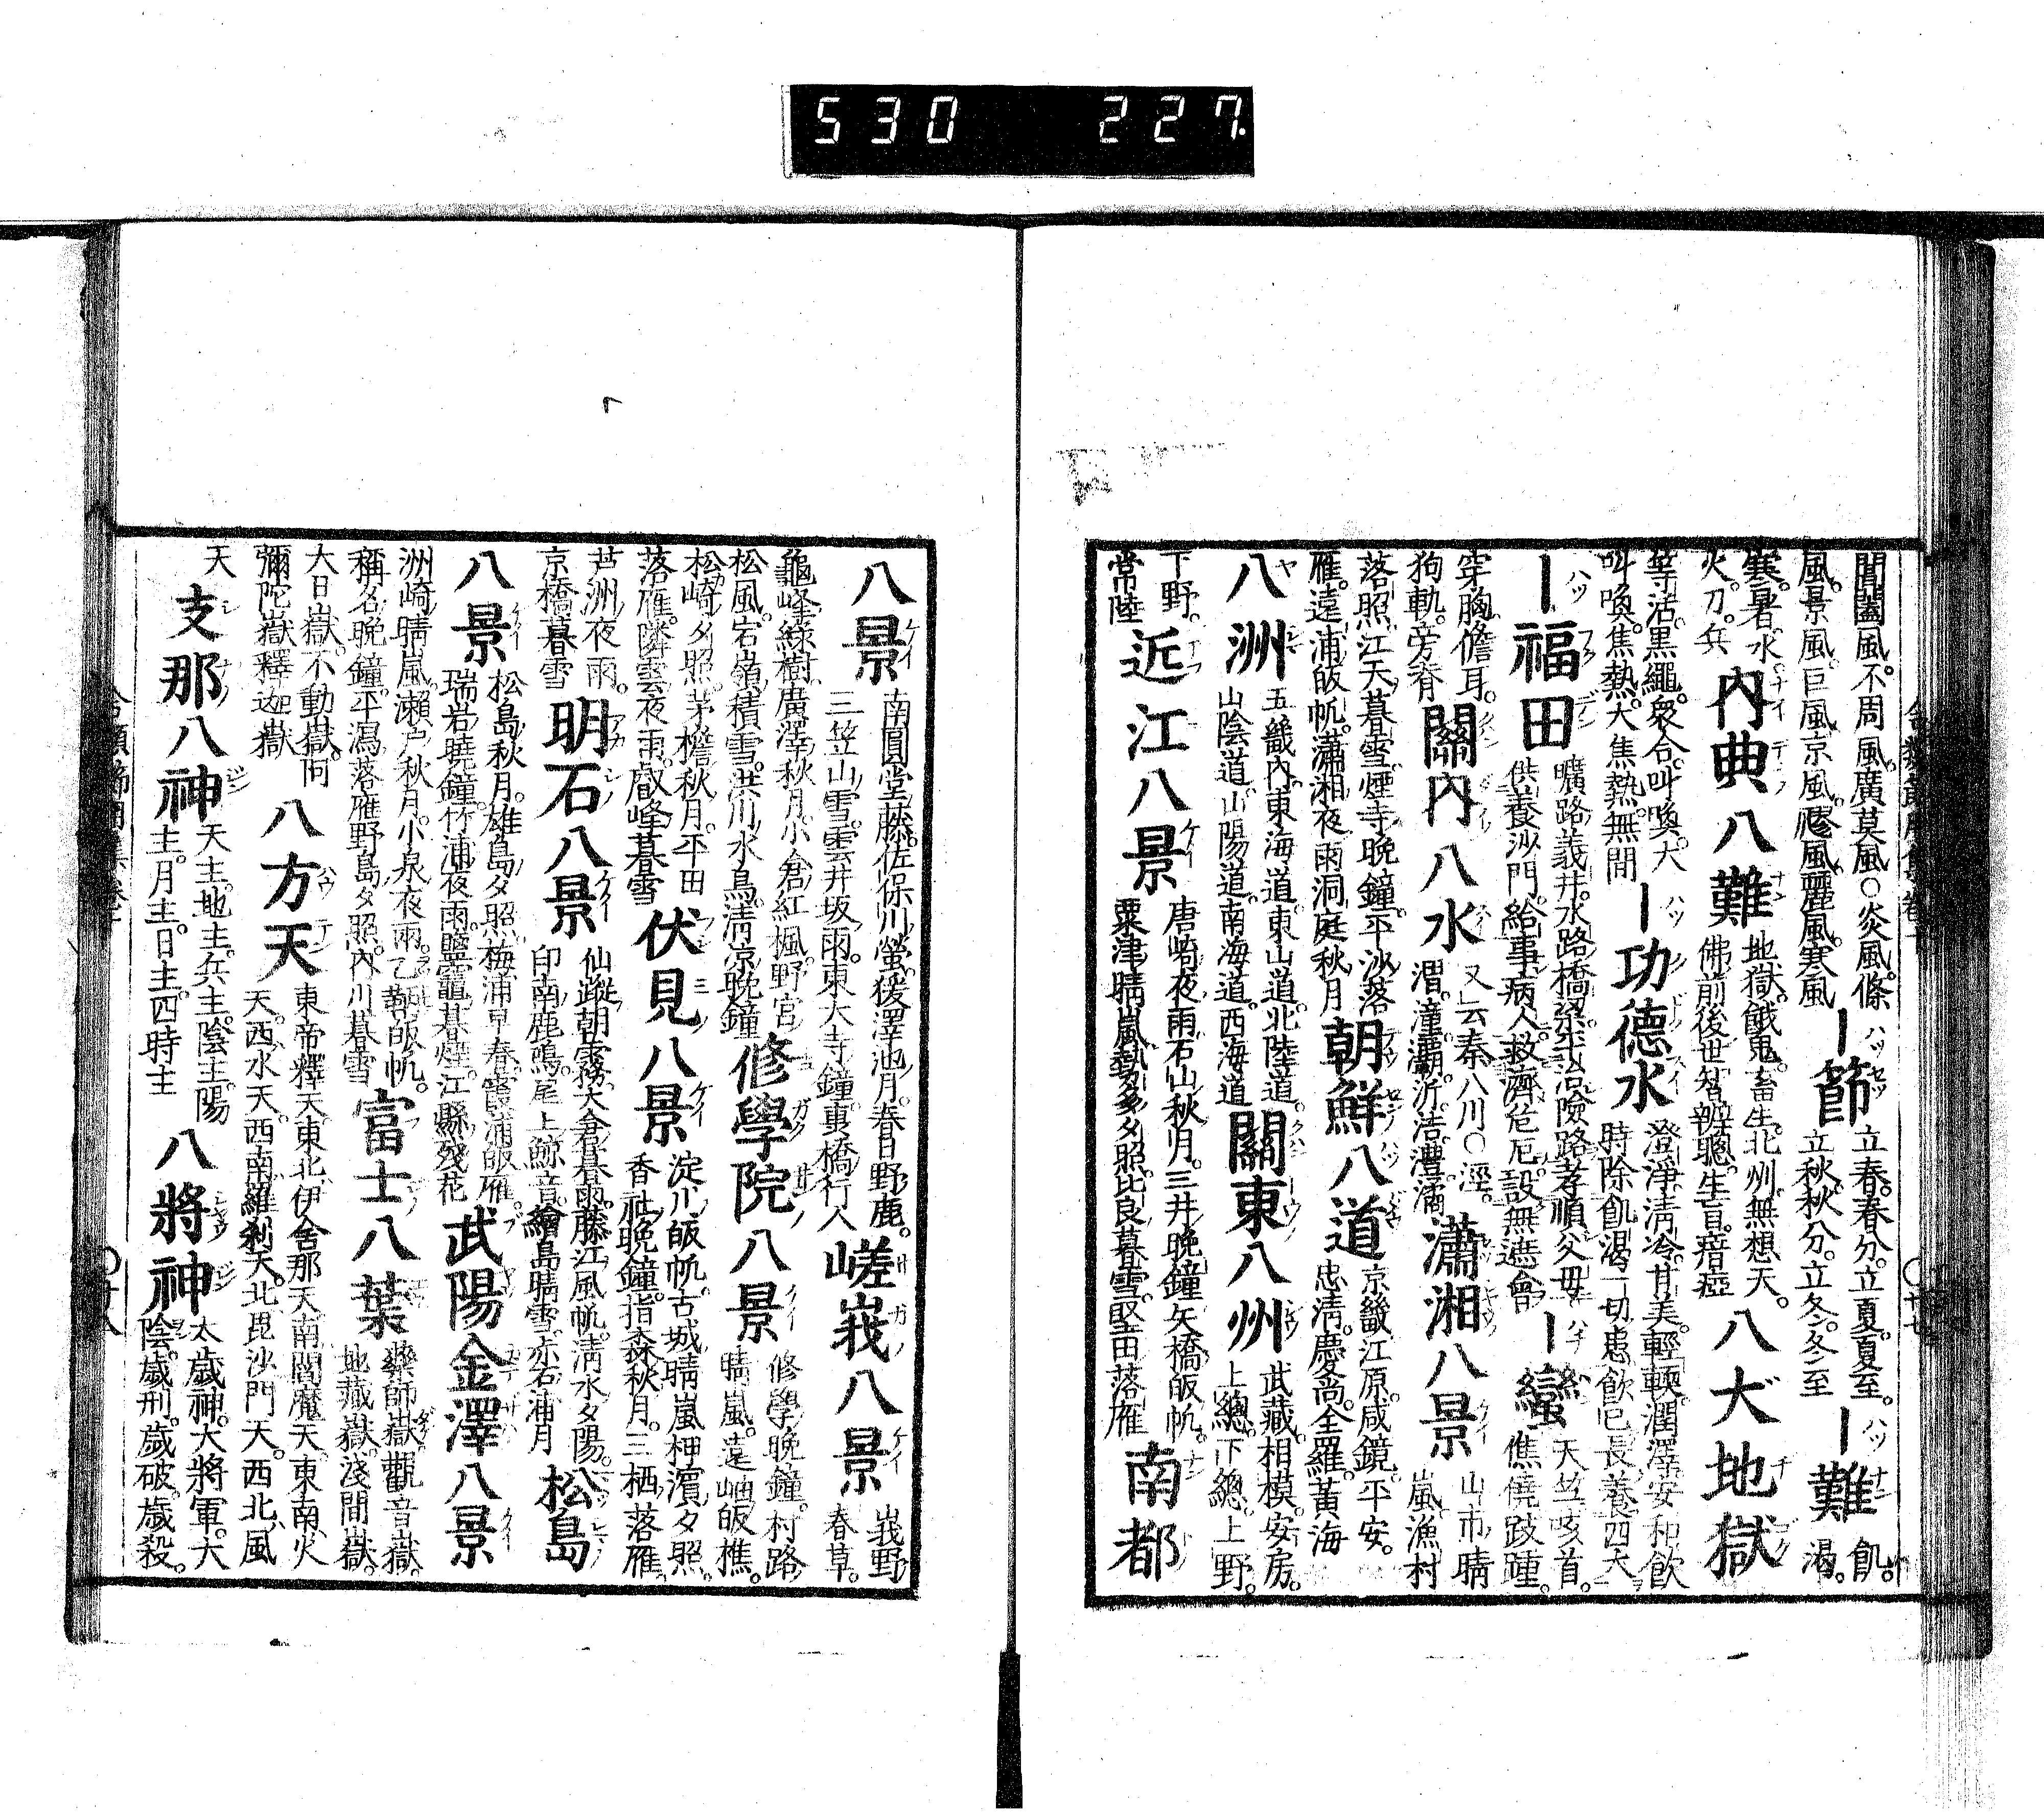 530 227.
閶闔風。不周風。廣莫風○炎風。條
風。景風。巨風。京風。飂風。麗風。寒風
｜節
立春。春分。立夏。夏至。
立秋。秋分。立冬。冬至
｜難
飢。
渴。
寒。暑。水。
火。刀。兵
內典八難
地獄。餓鬼。畜生。北州。無想天。
佛前後。世智辨聰。生盲瘖瘂
八大地獄
等活。黑繩。衆合。叫喚。大
叫喚。焦熱。大焦熱。無間
｜功德水
澄淨。清冷。甘美。輕輭。潤澤。安和。飲
時除飢渴。一切患。飲已長養四大
｜福田
曠路義井。水路橋梁。平治險路。孝順父母。
供養沙門。給事病人。救濟危厄。設無遮會
｜蠻
天竺。咳首。
僬僥。跂踵。
穿胸。儋耳。
狗軌。旁脊
關內八水
又云秦八川○涇。
渭。滻。灞。沂。浩。灃。滈
瀟湘八景
山市晴
嵐。漁村
落照。江天暮雪。煙寺晚鐘。平沙落
雁。遠浦皈帆。瀟湘夜雨。洞庭秋月
朝鮮八道
京畿。江原。咸鏡。平安。
忠清。慶尚。全羅。黃海
八洲
五畿內。東海道。東山道。北陸道。
山陰道。山陽道。南海道。西海道
關東八州
武藏。相模。安房。
上總。下總。上野。
下野。
常陸
近江八景
唐崎夜雨。石山秋月。三井晚鐘。矢橋皈帆。
粟津晴嵐。勢多夕照。比良暮雪。堅田落雁
南都
八景
南圓堂藤。佐保川螢。猿澤池月。春日野鹿。
三笠山雪。雲井坂雨。東大寺鐘。轟橋行人
嵯峩八景
峩野
春草。
龜峰綠樹。廣澤秋月。小倉紅楓。野宮
松風。岩嶺積雪。洪川水鳥。清涼晚鐘
修學院八景
修學晚鐘。村路
晴嵐。遠岫皈樵。
松崎夕照。茅檐秋月。平田
落雁。隣雲夜雨。叡峰暮雪
伏見八景
淀川皈帆。古城晴嵐。柙濱夕照。
香社晚鐘。指森秋月。三栖落雁。
芦洲夜雨。
京橋暮雪
明石八景
仙蹤朝霧。大倉暮雨。藤江風帆。清水夕陽。
印南鹿鳴。尾上鯨音。繪島晴雪。赤石浦月
松島
八景
松島秋月。雄島夕照。梅浦早春。霞浦皈雁。
瑞岩曉鐘。竹浦夜雨。鹽竈暮煙。江縣殘花
武陽金澤八景
洲崎晴嵐。瀨戶秋月。小泉夜雨。乙鞆皈帆。
稱名晚鐘。平瀉落雁。野島夕照。內川暮雪
富士八葉
藥師嶽。觀音嶽。
地藏嶽。淺間嶽。
大日嶽。不動嶽。阿
彌陀嶽。釋迦嶽
八方天
東帝釋天。東北伊舍那天。南閻魔天。東南火
天。西水天。西南羅刹天。北毘沙門天。西北風
天
支那八神
天主。地主。兵主。陰主。陽
主。月主。日主。四時主
八將神
太歲神。大將軍。大
陰。歲刑。歲破。歲殺。